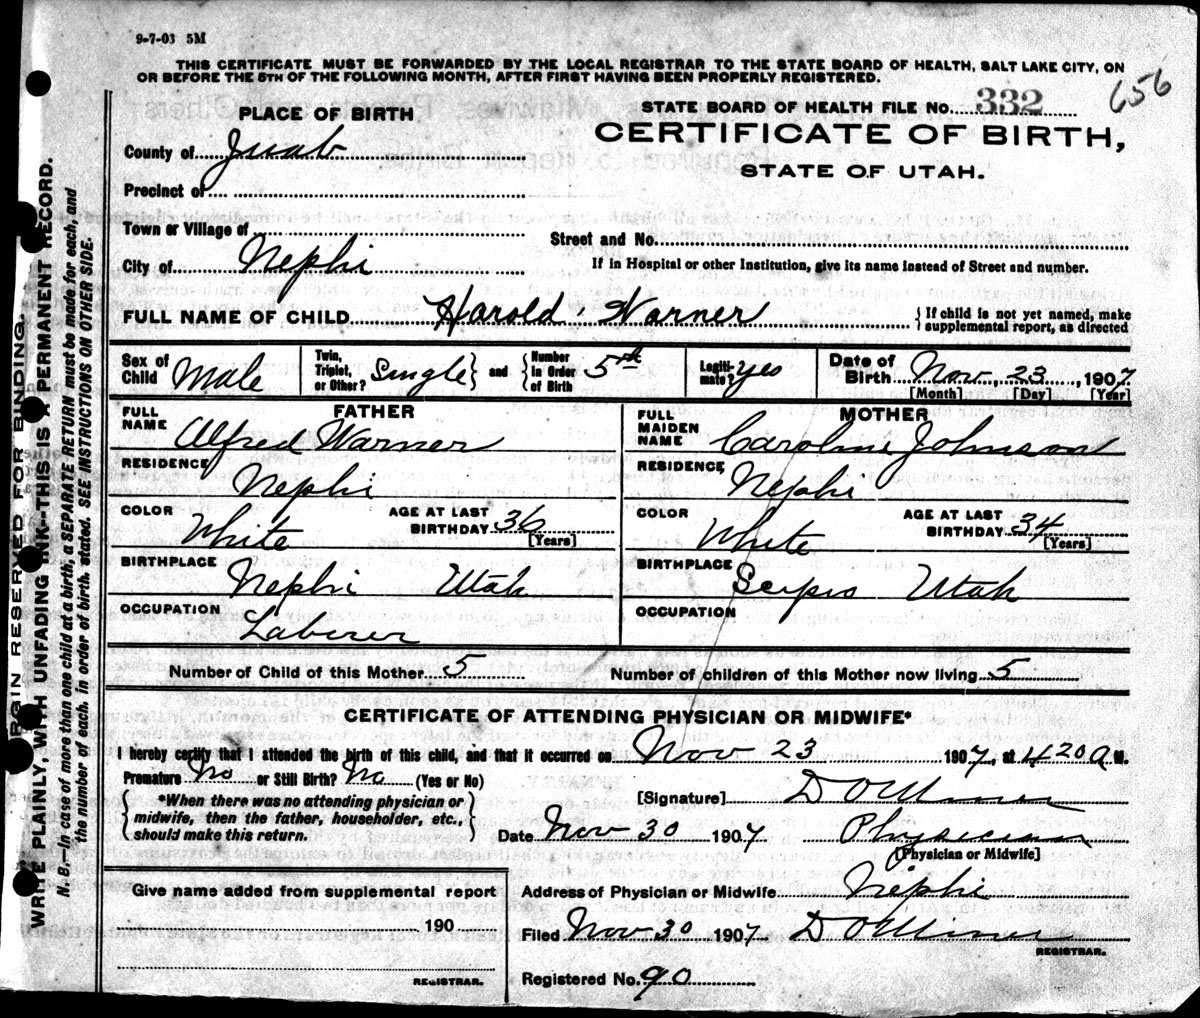 9-7-03 5M
THIS CERTIFICATE MUST BE FORWARDED BY THE LOCAL REGISTRAR TO THE STATE BOARD OF HEALTH, SALT LAKE CITY, ON
OR BEFORE THE 5TH OF THE FOLLOWING MONTH, AFTER FIRST HAVING BEEN PROPERLY REGISTERED.
656
STATE BOARD OF HEALTH FILE NO. 332
PLACE OF BIRTH
CERTIFICATE OF BIRTH,
STATE OF UTAH.
County of Juab
Precinct of
Town or Village of
Street and No.
City of Nephi
If in Hospital or other Institution, give its name instead of Street and number.
FULL NAME OF CHILD Harold Warner { If child is not yet named, make supplemental report, as directed
Sex of Child Male
Twin, Triplet, or Other? Single } and { Number in Order of Birth 5th
Legitimate? yes
Date of Birth Nov 23, 1907
[Month] [Day] [Year]
FATHER
FULL NAME Alfred Warner
RESIDENCE Nephi
COLOR White AGE AT LAST BIRTHDAY 36 [Years]
BIRTHPLACE Nephi Utah
OCCUPATION Laborer
MOTHER
FULL MAIDEN NAME Caroline Johnson
RESIDENCE Nephi
COLOR White AGE AT LAST BIRTHDAY 34 [Years]
BIRTHPLACE Scipio Utah
OCCUPATION
Number of Child of this Mother 5 Number of children of this Mother now living 5
CERTIFICATE OF ATTENDING PHYSICIAN OR MIDWIFE*
I hereby certify that I attended the birth of this child, and that it occurred on Nov 23 1907, at 4 20 a M.
Premature No or Still Birth? No (Yes or No)
[Signature]
{ *When there was no attending physician or midwife, then the father, householder, etc., should make this return. }
Date Nov 30 1907 Physician
[Physician or Midwife]
Give name added from supplemental report
190
REGISTRAR.
Address of Physician or Midwife Nephi
Filed Nov 30 1907
REGISTRAR.
Registered No. 90
RGIN RESERVED FOR BINDING.
WRITE PLAINLY, WITH UNFADING INK—THIS IS A PERMANENT RECORD.
N. B.—In case of more than one child at a birth, a SEPARATE RETURN must be made for each, and
the number of each, in order of birth, stated. SEE INSTRUCTIONS ON OTHER SIDE.